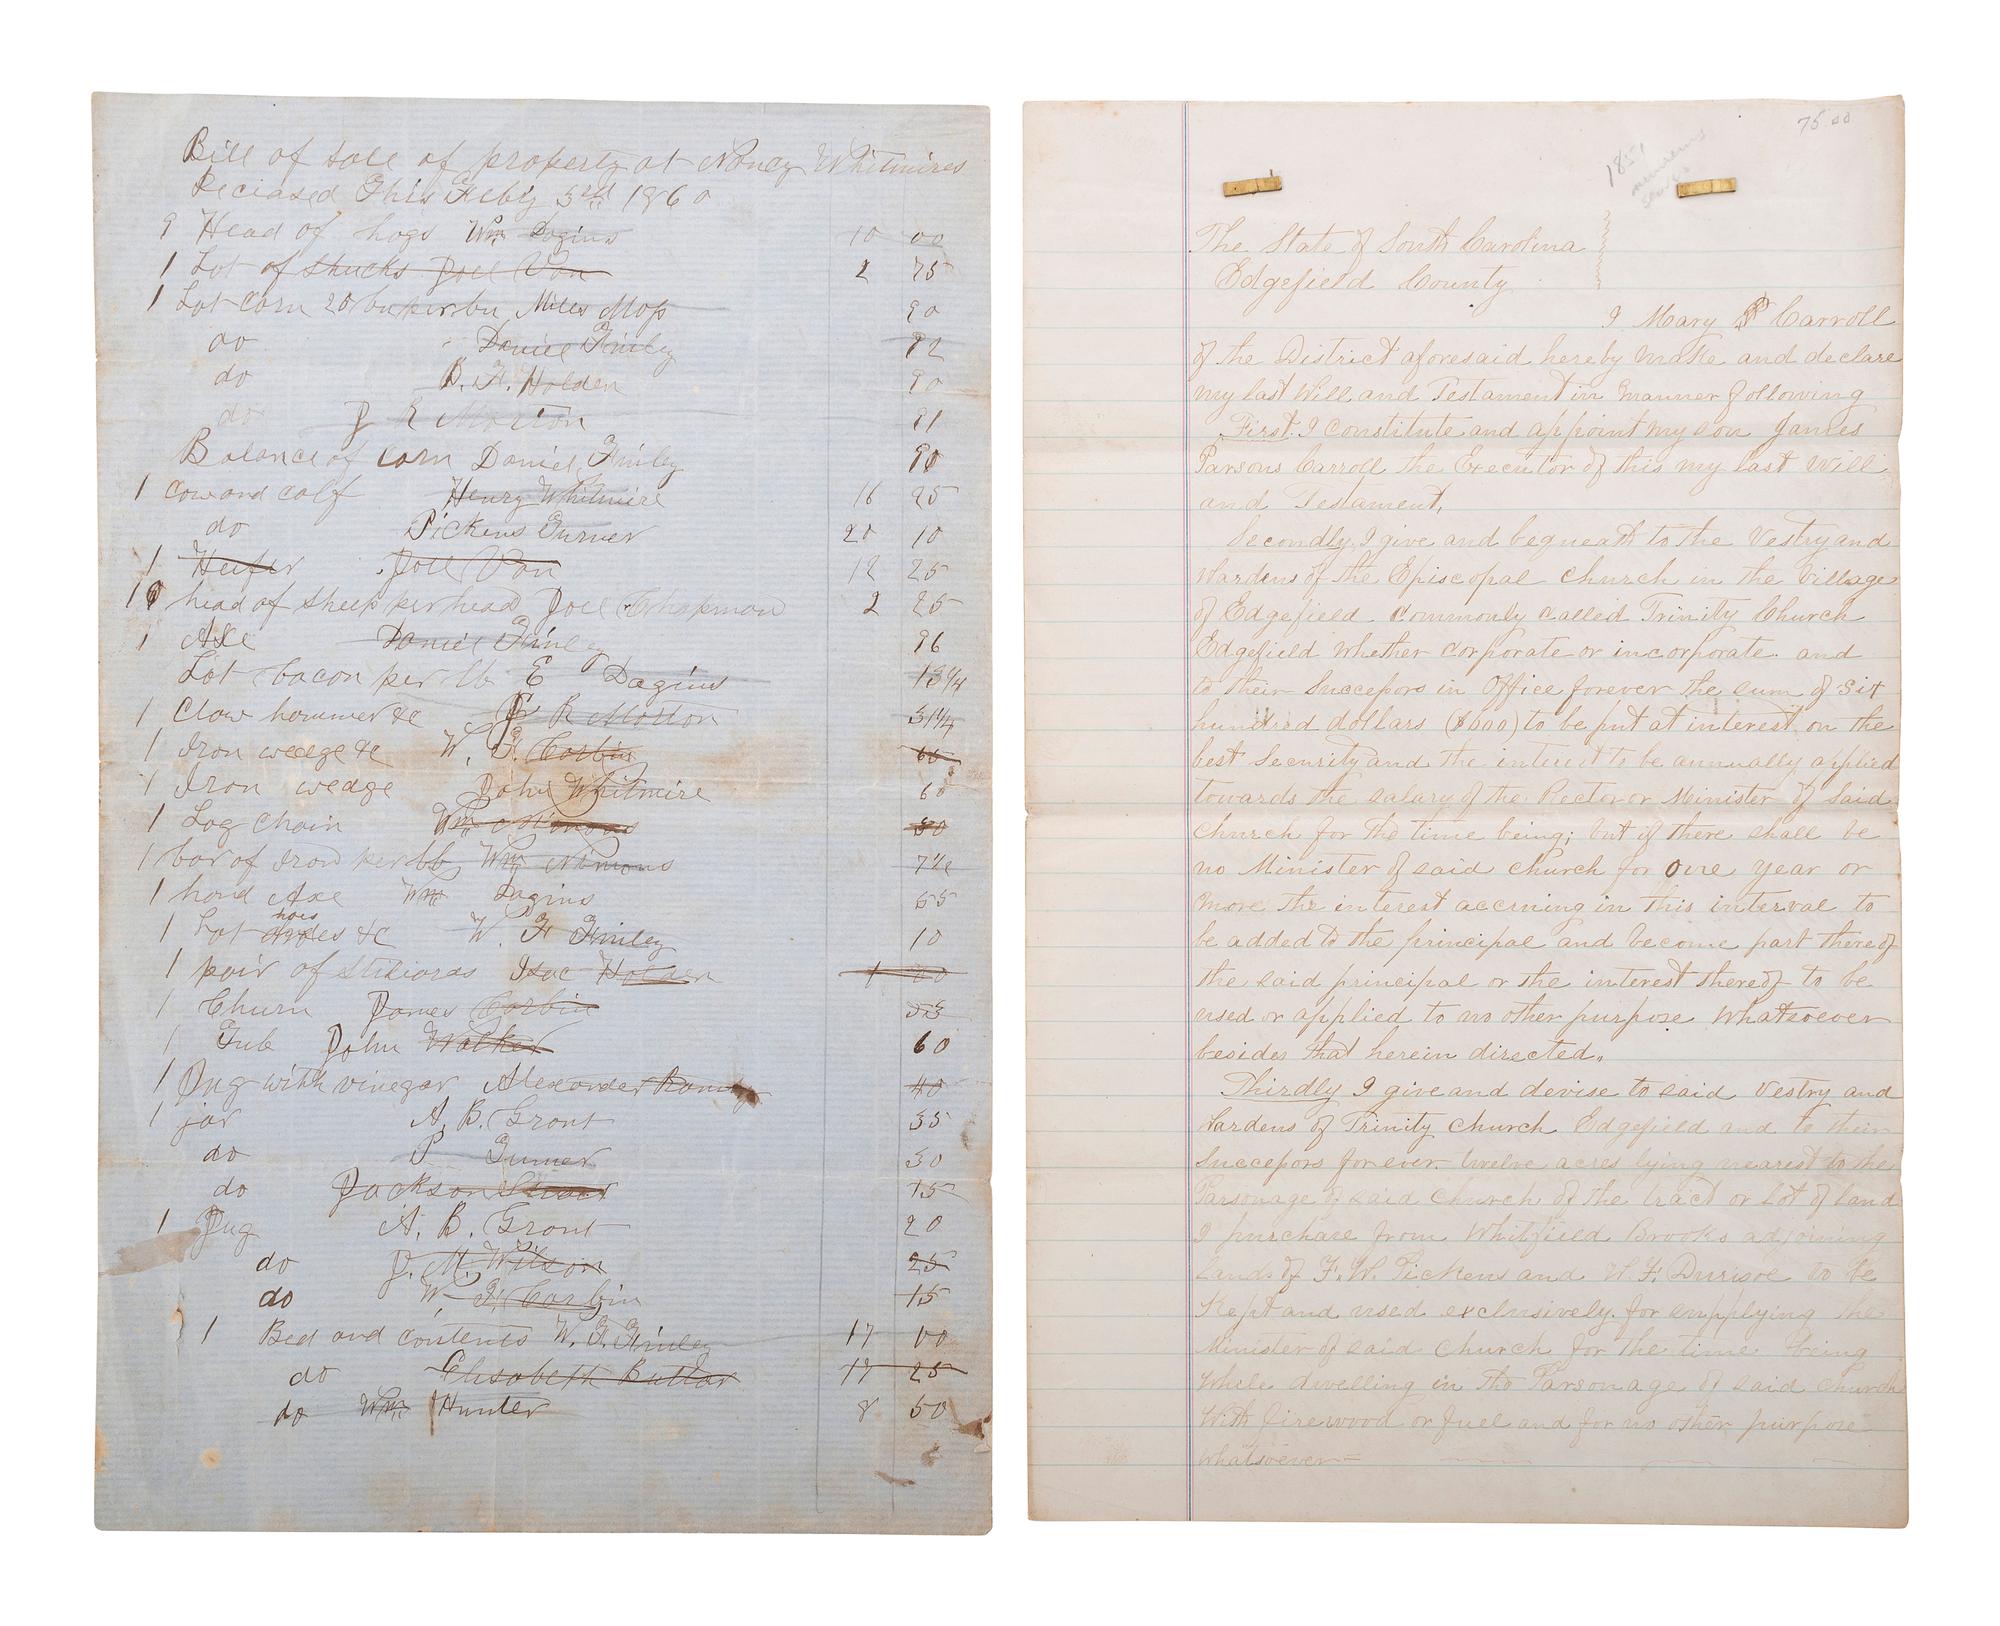 Bill of sale of property at Nancy Whitmires
Deciased This Feby 3rd 1860
9 Head of hogs Wm Dagins 10 00
1 Lot of shucks Joel Van 2 75
1 Lot corn 20 bu per bu Miles Moss 90
do Daniel Finley 92
do B. H. Holden 90
do J R Morton 91
Balance of corn Daniel Finley 90
1 Cow and calf Henry Whitmire 16 25
do Pickens Turner 20 10
1 Heifer Joel Van 12 25
10 head of sheep per head Joel Chapman 2 25
1 Axe Daniel Finley 96
Lot bacon per lb E Dagins 13 1/4
1 Claw hommer &c J R Morton
1 Iron wedge &c W. F. Corbin 60
1 Iron wedge John Whitmire 60
1 Log Chain Wm 50
1 bar of Iron per lb Wm Nimons
1 hand Axe Wm Dagins 55
1 Lot hoes &c W. F Finley 10
1 pair of stiliards Isac Holden 1 00
1 Churn James Corbin
1 Tub John Walker 60
1 Jug with vinegar Alexander 40
1 jar A. B. Grant 35
do P Turner 30
do Jackson 15
1 Jug A. B. Grant 20
do J. M. Wilson 25
do W. F. Corbin 15
1 Bed and contents W. F. Finley 17 00
do Elisabeth Buttar 17 25
do Wm Hunter 8 50
75.00
1851
The State of South Carolina
Edgefield County
I Mary P Carroll
of the District aforesaid hereby make and declare
my last Will and Testament in manner following
First. I constitute and appoint my son James
Parsons Carroll the Executor of this my last Will
and Testament,
Secondly, I give and bequeath to the Vestry and
Wardens of the Episcopal church in the Village
of Edgefield commonly called Trinity Church
Edgefield whether corporate or incorporate and
to their Successors in Office forever the sum of Six
hundred dollars ($600) to be put at interest on the
best Security and the interest to be annually applied
towards the salary of the Rector or Minister of said
church for the time being; but if there shall be
no Minister of said church for one year or
more the interest accruing in this interval to
be added to the principal and become part thereof
the said principal or the interest thereof to be
used or applied to no other purpose whatsoever
besides that herein directed.
Thirdly I give and devise to said Vestry and
Wardens of Trinity church Edgefield and to their
Successors forever twelve acres lying nearest to the
Parsonage of said church of the tract or lot of land
I purchase from Whitfield Brooks adjoining
lands of F. W. Pickens and W. F. Durisoe to be
Kept and used exclusively for supplying the
Minister of said church for the time being
while dwelling in the Parsonage of said church
with firewood or fuel and for no other purpose
whatsoever